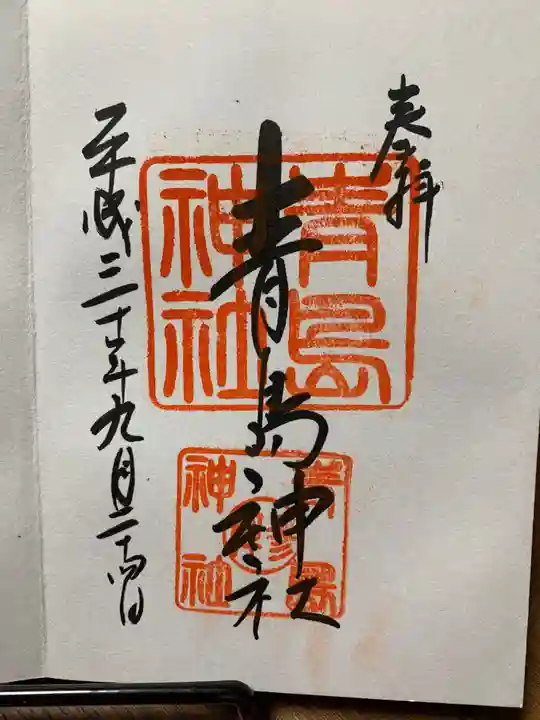 奉拝
青島神社
平成三十年九月二十四日
青島
神社
青島
神社